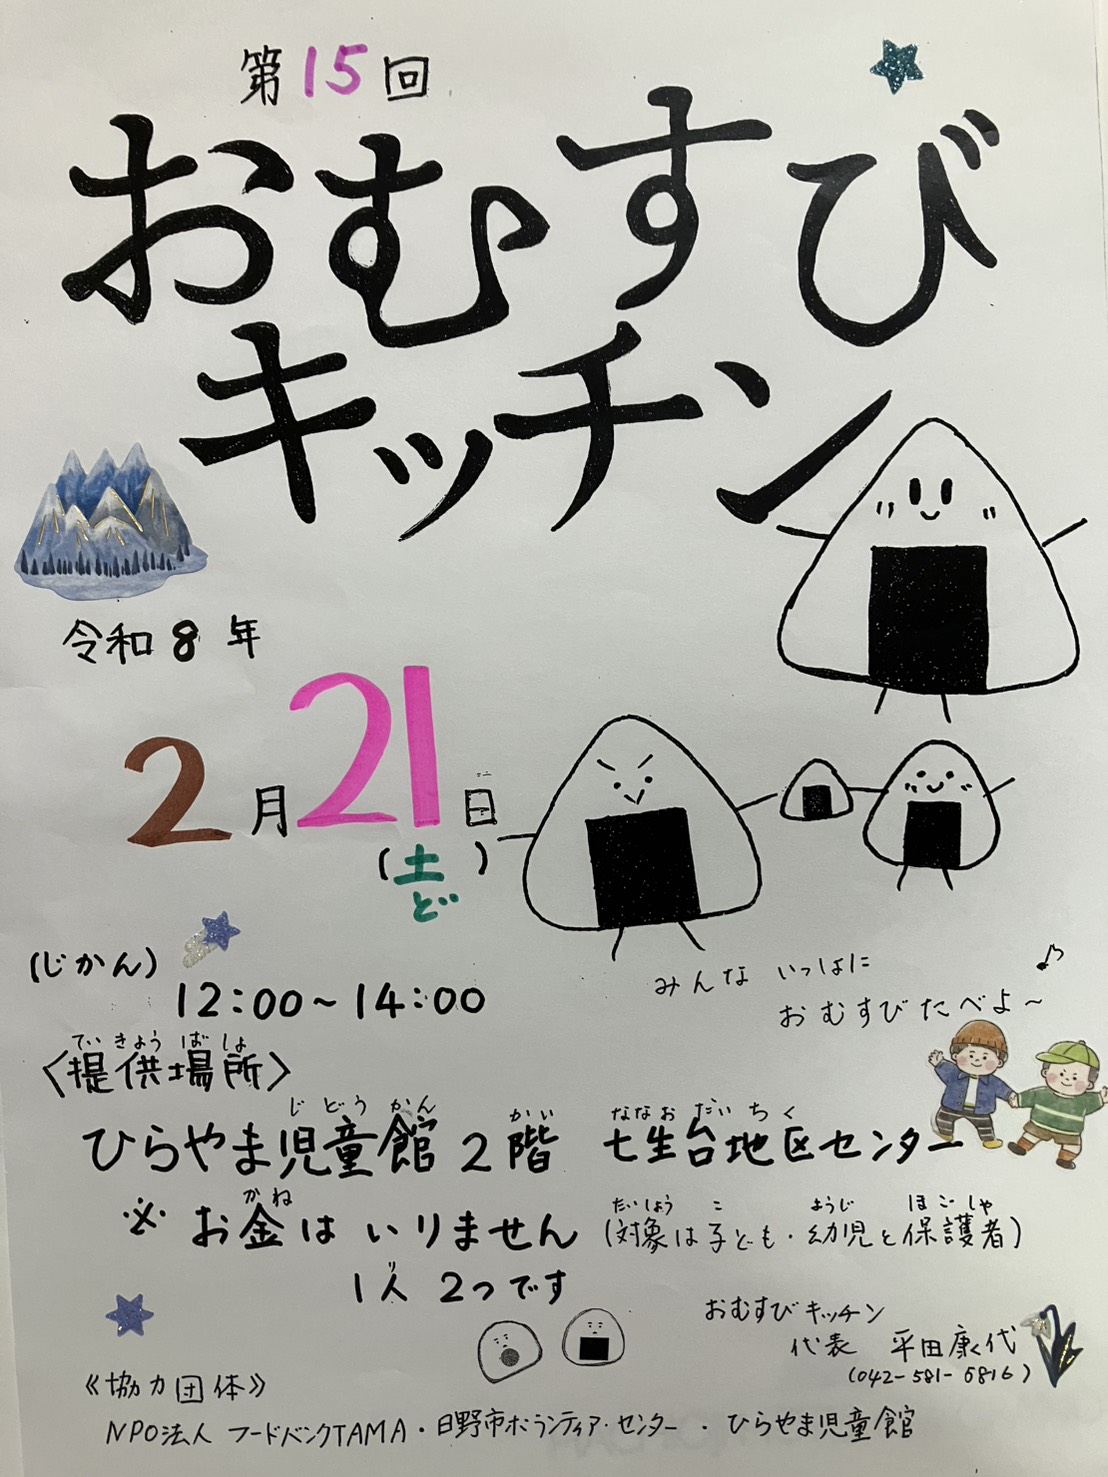 第15回
おむすび
キッチン
令和8年
2月21日
(土)
ど
(じかん)
12:00~14:00
みんな いっしょに
おむすびたべよ~
ていきょうばしょ
〈提供場所〉
じどうかん かい ななおだいちく
ひらやま児童館 2階 七生台地区センター
かね たいしょう こ ようじ ほごしゃ
※お金はいりません (対象は子ども・幼児と保護者)
り
1人 2つです
おむすびキッチン
代表 平田康代
(042-581-6816)
《協力団体》
NPO法人 フードバンクTAMA・日野市ボランティア・センター・ひらやま児童館